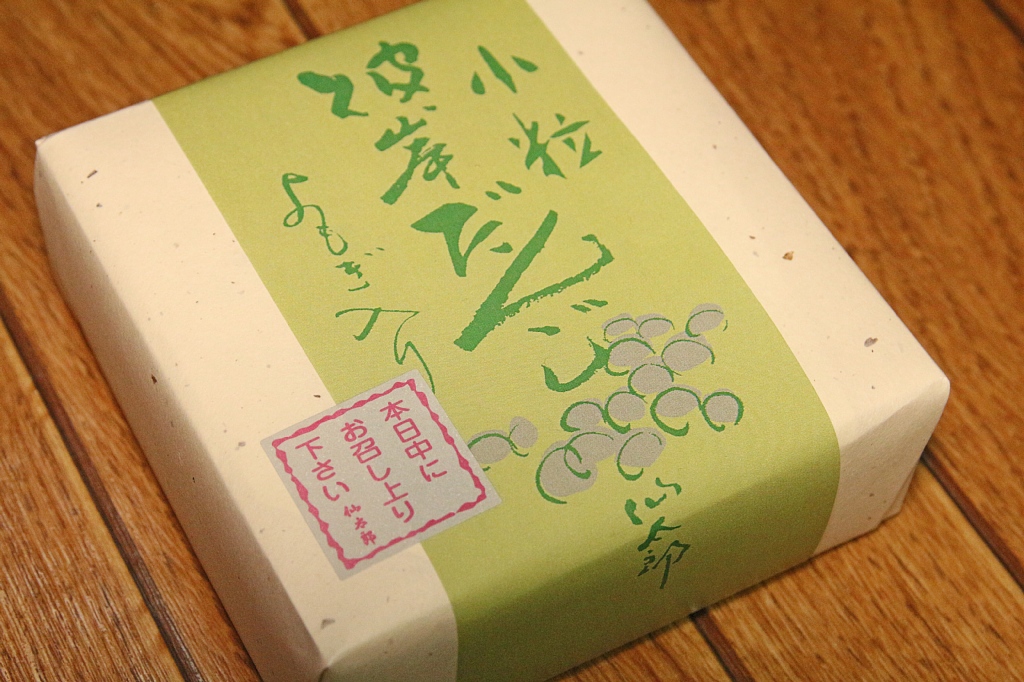 小粒
彼岸だんご
よもぎ入り
仙太郎
本日中に
お召し上り
下さい
仙太郎